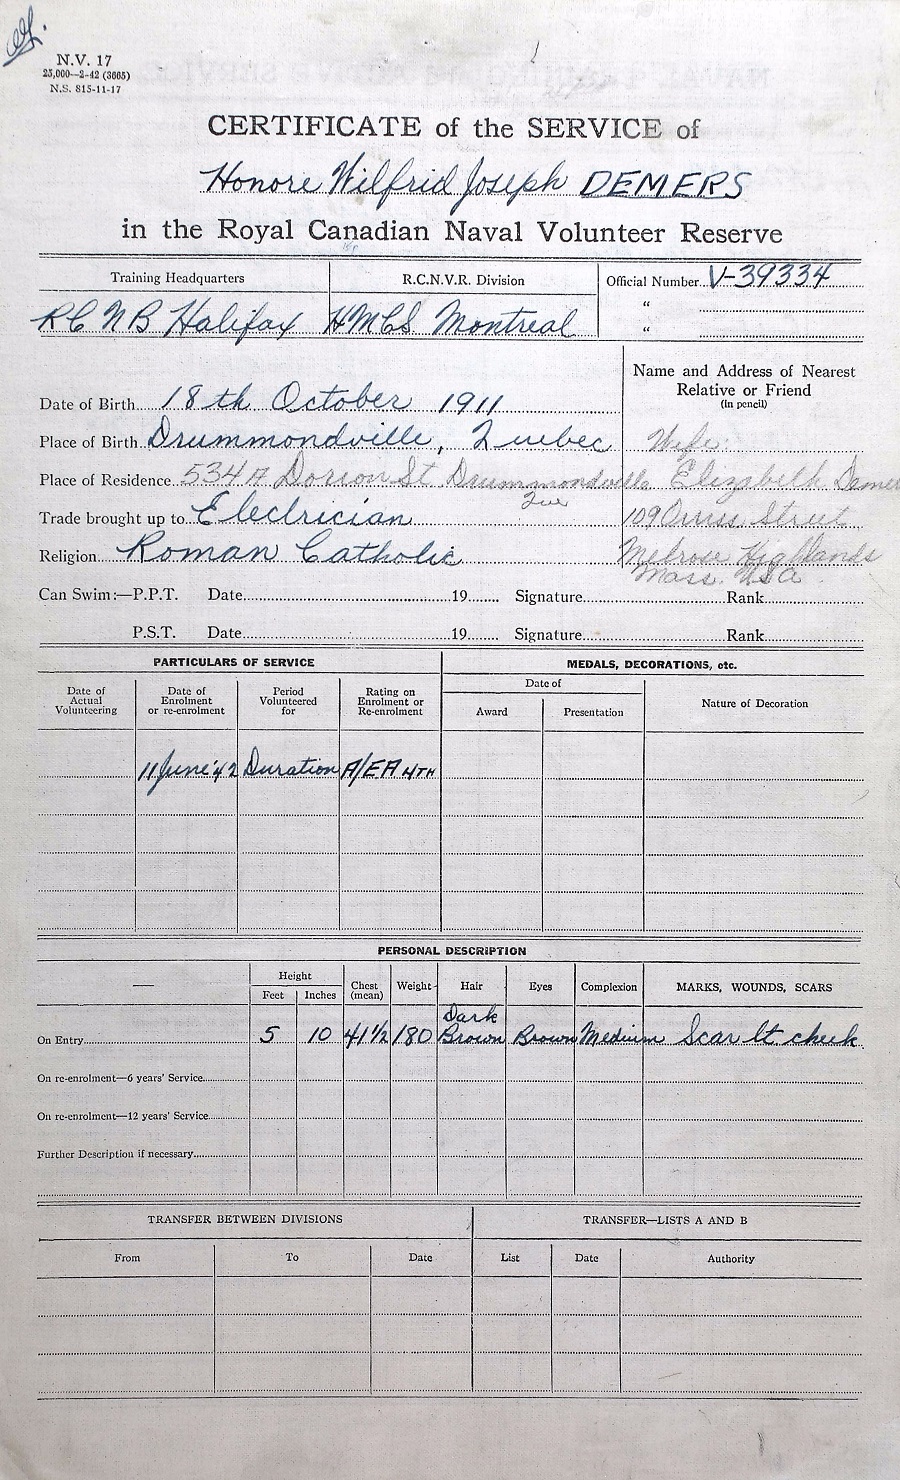 N.V. 17
25,000—2-42 (3665)
N.S. 815-11-17
CERTIFICATE of the SERVICE of
Honore Wilfrid Joseph DEMERS
in the Royal Canadian Naval Volunteer Reserve
Training Headquarters R.C.N.V.R. Division Official Number V-39334
"
RCNB Halifax HMCS Montreal "
Name and Address of Nearest
Relative or Friend
(in pencil)
Date of Birth 18th October 1911
Place of Birth Drummondville, Quebec Wife:
Place of Residence 534A Dorion St Drummondville Elizabeth Demers
Que
Trade brought up to Electrician 109 Street
Religion Roman Catholic Melrose Highlands
Mass. USA
Can Swim:—P.P.T. Date 19 Signature Rank
P.S.T. Date 19 Signature Rank
PARTICULARS OF SERVICE MEDALS, DECORATIONS, etc.
Date of Actual Volunteering Date of Enrolment or re-enrolment Period Volunteered for Rating on Enrolment or Re-enrolment Date of Nature of Decoration
Award Presentation
11 June '42 Duration A/EA 4TH
PERSONAL DESCRIPTION
— Height Chest (mean) Weight Hair Eyes Complexion MARKS, WOUNDS, SCARS
Feet Inches
On Entry 5 10 41½ 180 Dark Brown Brown Medium Scar lt cheek
On re-enrolment—6 years' Service
On re-enrolment—12 years' Service
Further Description if necessary
TRANSFER BETWEEN DIVISIONS TRANSFER—LISTS A AND B
From To Date List Date Authority